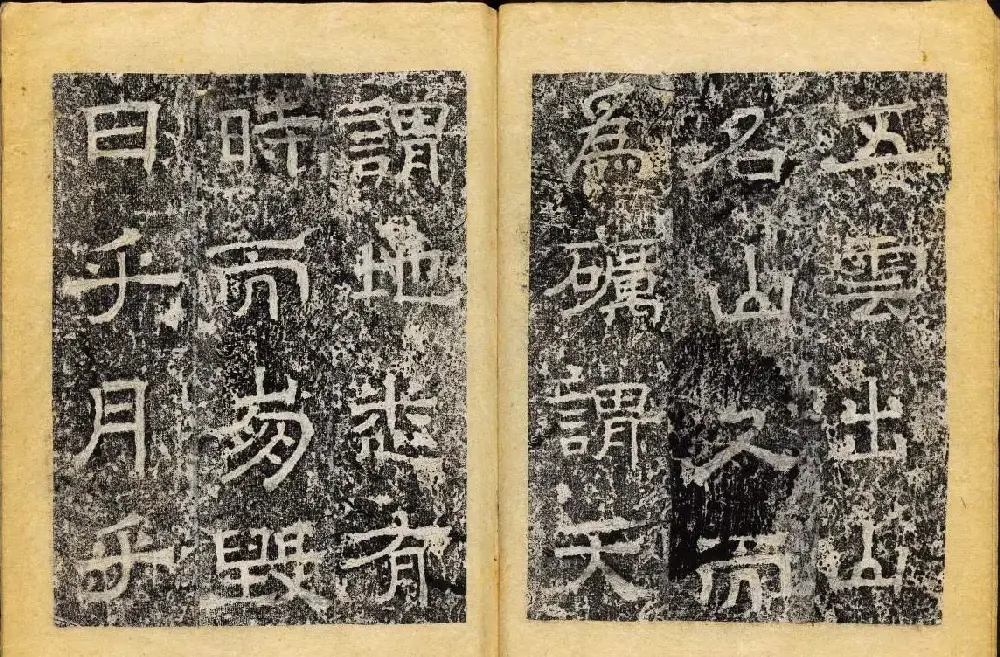 五雲出山
名山久而
為礪謂天
謂地有
時而易毀
日乎月乎